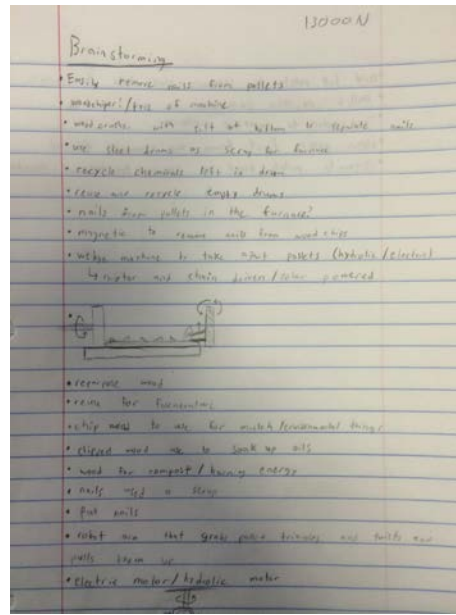 13000N
Brainstorming
• Easily remove nails from pallets
• woodchiper/ of machine
• wood with at bottom to separate nails
• use steel drums as scrap for furnace
• recycle chemicals left in drum
• reuse and recycle empty drums
• nails from pallets in the furnace?
• magnetic to remove nails from wood chips
• wedge machine to take apart pallets (hydrolic/electric)
↳ motor and chain driven/solar powered
• repurpose wood
• reuse for
• chip wood to use for mulch/enviromental things
• chipped wood use to soak up oils
• wood for compost/burning energy
• nails used a scrap
• nails
• robot arm that grabs and twists and
pulls up
• electric motor/hydrolic motor